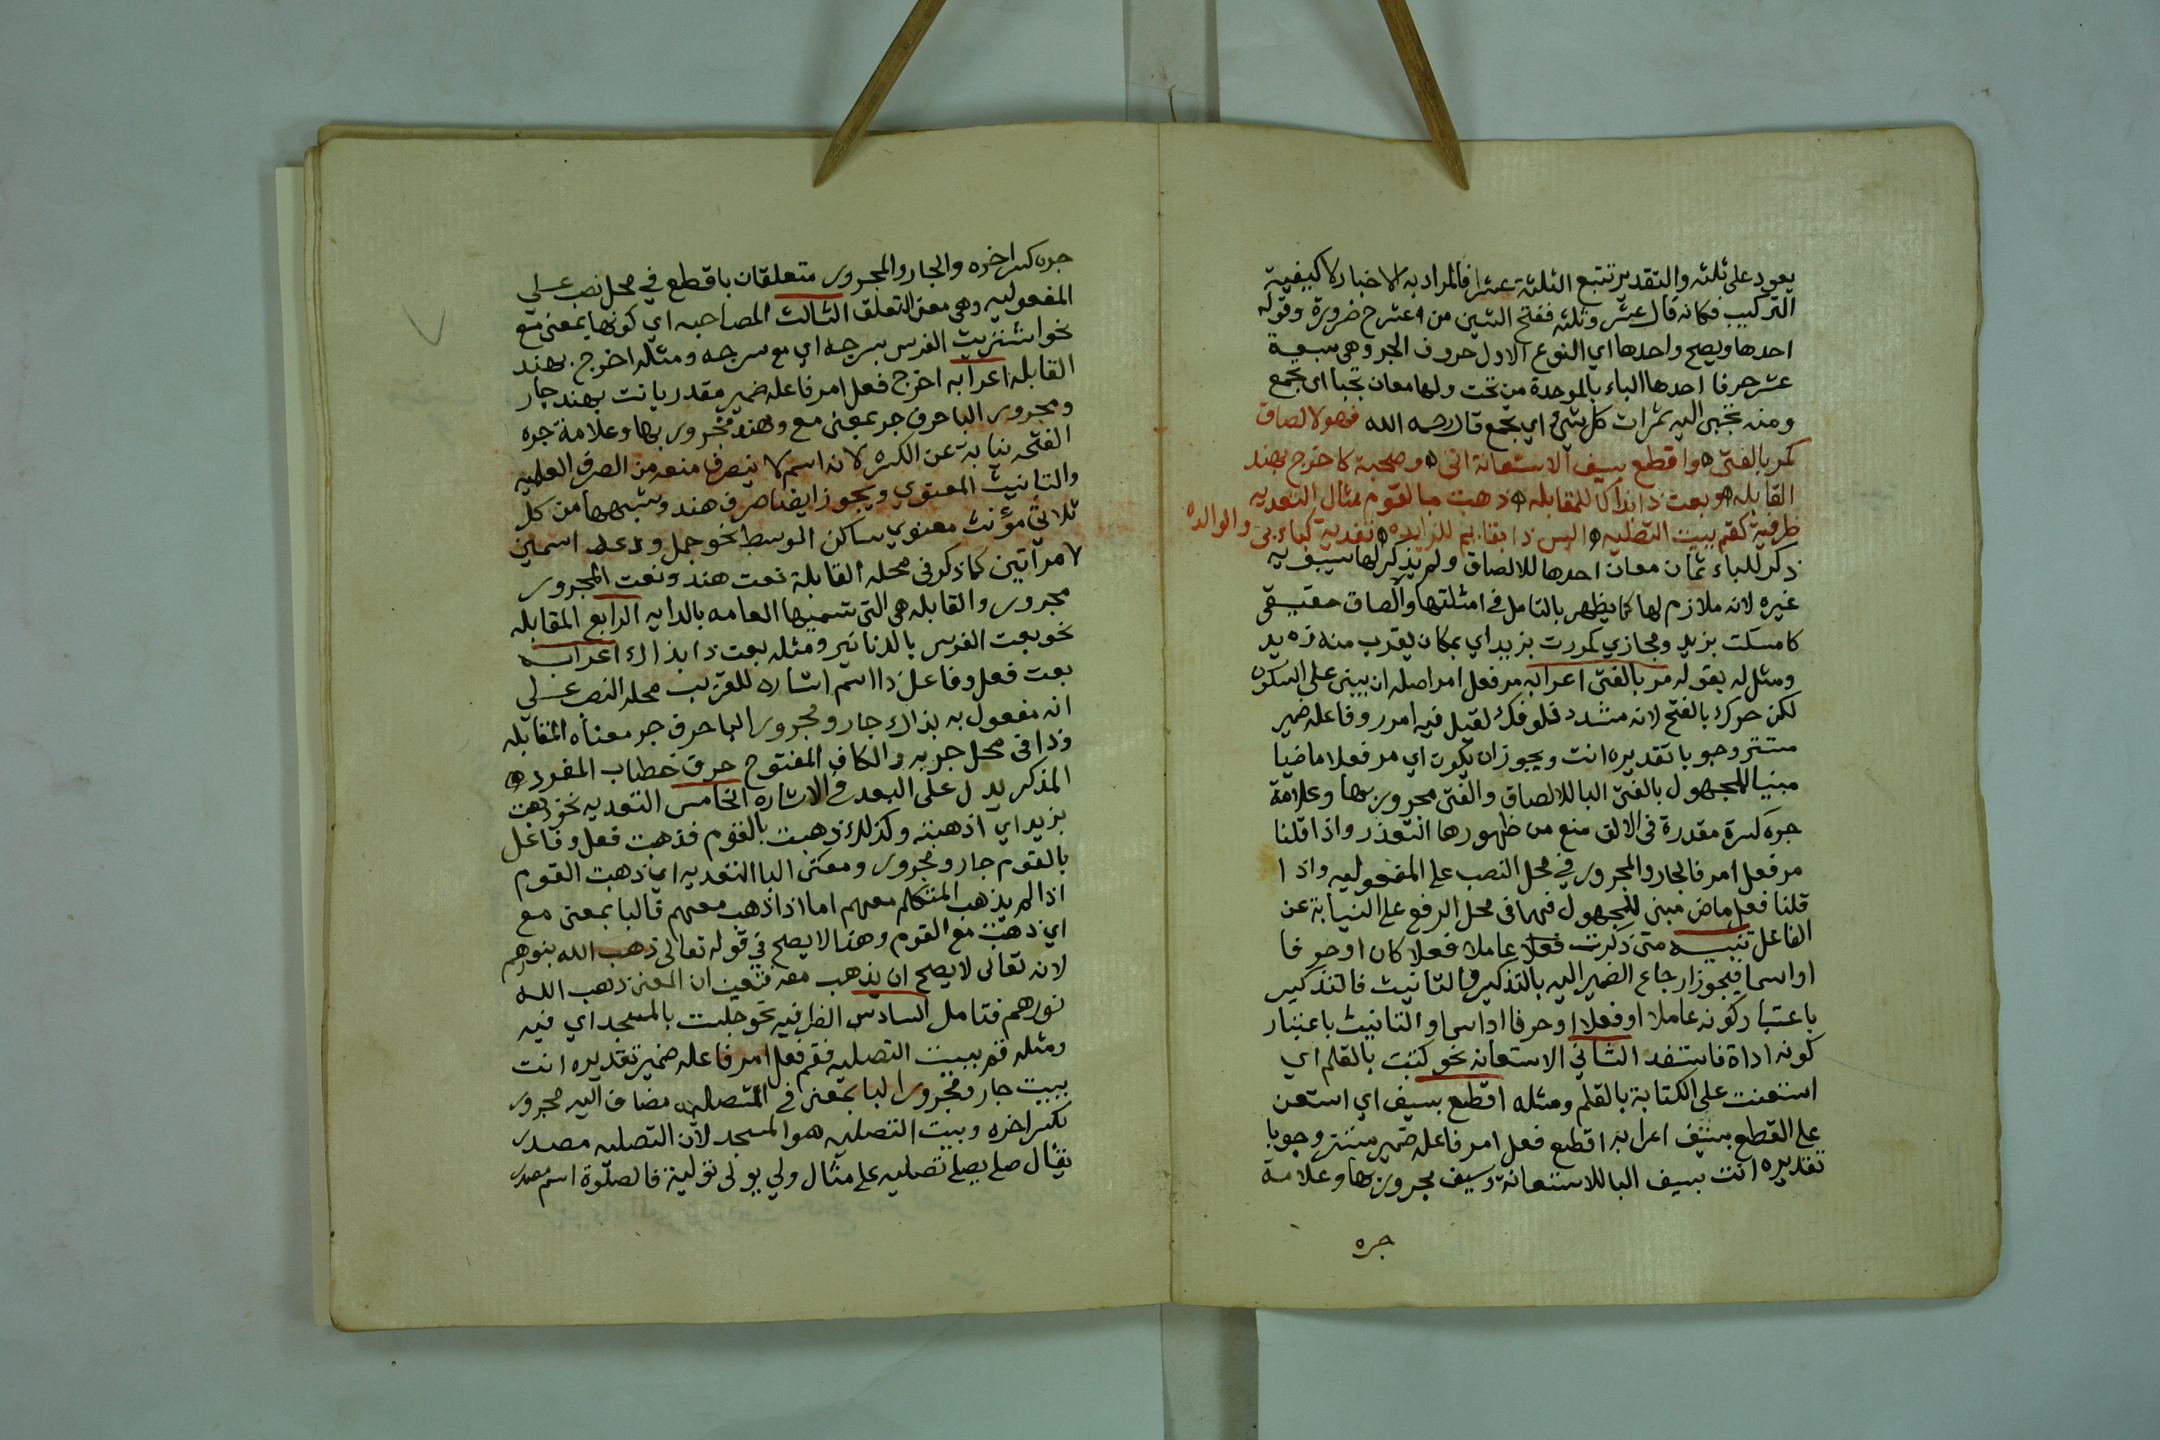 يعود على ثلثه والتقدير تتبع الثلثة عشرا فالمراد به الاخبار لا كيفية
التركيب فكانه قال عشر وثلثه ففتح الشين من عشرح ضرورة وقوله
احدها ويصح واحدها اي النوع الاول حروف الجر وهي سبعة
عشر حرفا احدها الباء بالموحدة من تحت ولها معان تجبا اي تجمع
ومنه تجبى اليه ثمرات كل شئ اي تجمع قال رحمه الله فهو لالصاق
كمر بالفتى واقطع بسيف الاستعانة اتى وصحبة كاخرج بهند
القابله وبعت ذا بذاكا للمقابله ذهبت بالقوم مثال التعديه
ظرفية كقم ببيت التصليه اليس ذا بقايم للزايده تفدية كباء بي والوالده
ذكر للباء ثمان معان احدها للالصاق ولم يذكر لها سيبويه
غيره لانه ملازم لها كما يظهر بالتامل في امثلتها والصاق حقيقي
كامسكت بزيد ومجازي كمررت بزيد اي بمكان يقرب منه زيد
ومثل له بقوله مر بالفتى اعرابه مر فعل امر اصله ان يبنى على السكون
لكن حرك بالفتح لانه مشدد فلو فك لقيل فيه امرر وفاعله ضمير
مستتر وجوبا تقديره انت ويجوز ان يكون اي مر فعلا ماضيا
مبنيا للمجهول بالفتى البا للالصاق والفتى مجرور بها وعلامة
جره كسرة مقدرة في الالف منع من ظهورها التعذر واذا قلنا
مر فعل امر فالجار والمجرور في محل النصب على المفعوليه واذا
قلنا فعل ماض مبني للمجهول فهما في محل الرفع على النيابة عن
الفاعل تنبيه متى ذكرت فعلا عاملا فعلا كان او حرفا
او اسما فيجوز ارجاع الضمير اليه بالتذكير والتانيث فالتذكير
باعتبار كونه عاملا او فعلا او حرفا او اسما والتانيث باعتبار
كونه اداة فاستفد الثاني الاستعانه نحو كتبت بالقلم اي
استعنت على الكتابة بالقلم ومثله اقطع بسيف اي استعن
على القطع بسيف اعرابه اقطع فعل امر فاعله ضمير مستتر وجوبا
تقديره انت بسيف البا للاستعانة وسيف مجرور بها وعلامة
جره
جره كسر اخره والجار والمجرور متعلقان باقطع في محل نصب على
المفعوليه وهي معنى التعلق الثالث المصاحبه اي كونها بمعنى مع
نحو اشتريت الفرس بسرجه اي مع سرجه ومثله اخرج بهند
القابله اعرابه اخرج فعل امر فاعله ضمير مقدر يانت بهند جار
ومجرور البا حرف جر بمعنى مع وهند مجرور بها وعلامة جره
الفتحه نيابة عن الكسره لانه اسم لا ينصرف منعه من الصرف العلميه
والتانيث المعنوي ويجوز ايضا صرف هند وشبهها من كل
ثلاثي مؤنث معنوي ساكن الوسط نحو جمل ودعد اسمين
لامراتين كما ذكر في محله القابلة نعت هند ونعت المجرور
مجرور والقابله هي التي تسميها العامه بالدايه الرابع المقابله
نحو بعت الفرس بالدنانير ومثله بعت ذا بذاك اعرابه
بعت فعل وفاعل ذا اسم اشاره للقريب محله النصب على
انه مفعول به بذاك جار ومجرور البا حرف جر معناه المقابله
وذا في محل جر به والكاف المفتوح حرف خطاب المفرد
المذكر يدل على البعد في الاشاره الخامس التعديه نحو ذهبت
بزيد اي اذهبته وكذلك ذهبت بالقوم فذهبت فعل وفاعل
بالقوم جار ومجرور ومعنى البا التعديه اي ذهبت القوم
اذا لم يذهب المتكلم معهم اما اذا ذهب معهم فالبا بمعنى مع
اي ذهبت مع القوم وهذا لا يصح في قوله تعالى ذهب الله بنورهم
لانه تعالى لا يصح ان يذهب معه فتعين ان المعنى ذهب الله
نورهم فتامل السادس الظرفيه نحو جلست بالمسجد اي فيه
ومثله قم ببيت التصليه فقم فعل امر فاعله ضمير تقديره انت
ببيت جار ومجرور البا بمعنى في التصليه مضاف اليه مجرور
بكسر اخره وبيت التصليه هو المسجد لان التصليه مصدر
يقال صلى يصلي تصليه على مثال ولي يولي تولية فالصلوة اسم مصدر